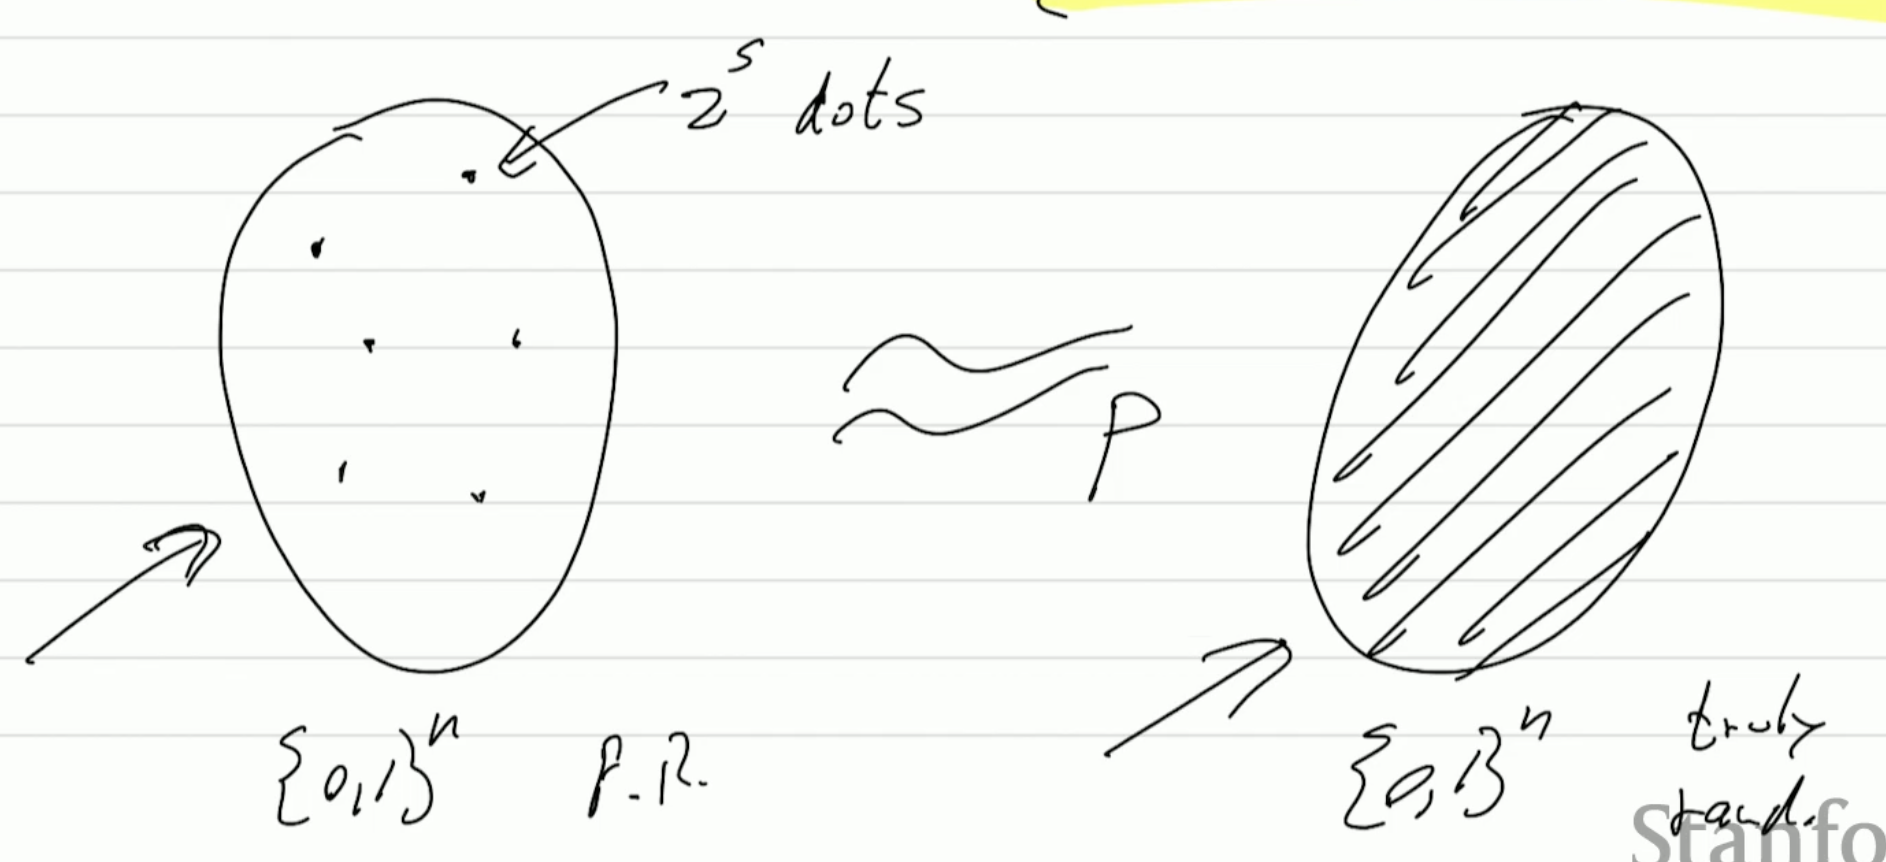 2^s dots
≈p
{0,1}^n P.R.
{0,1}^n truly
rand.
Stanfo